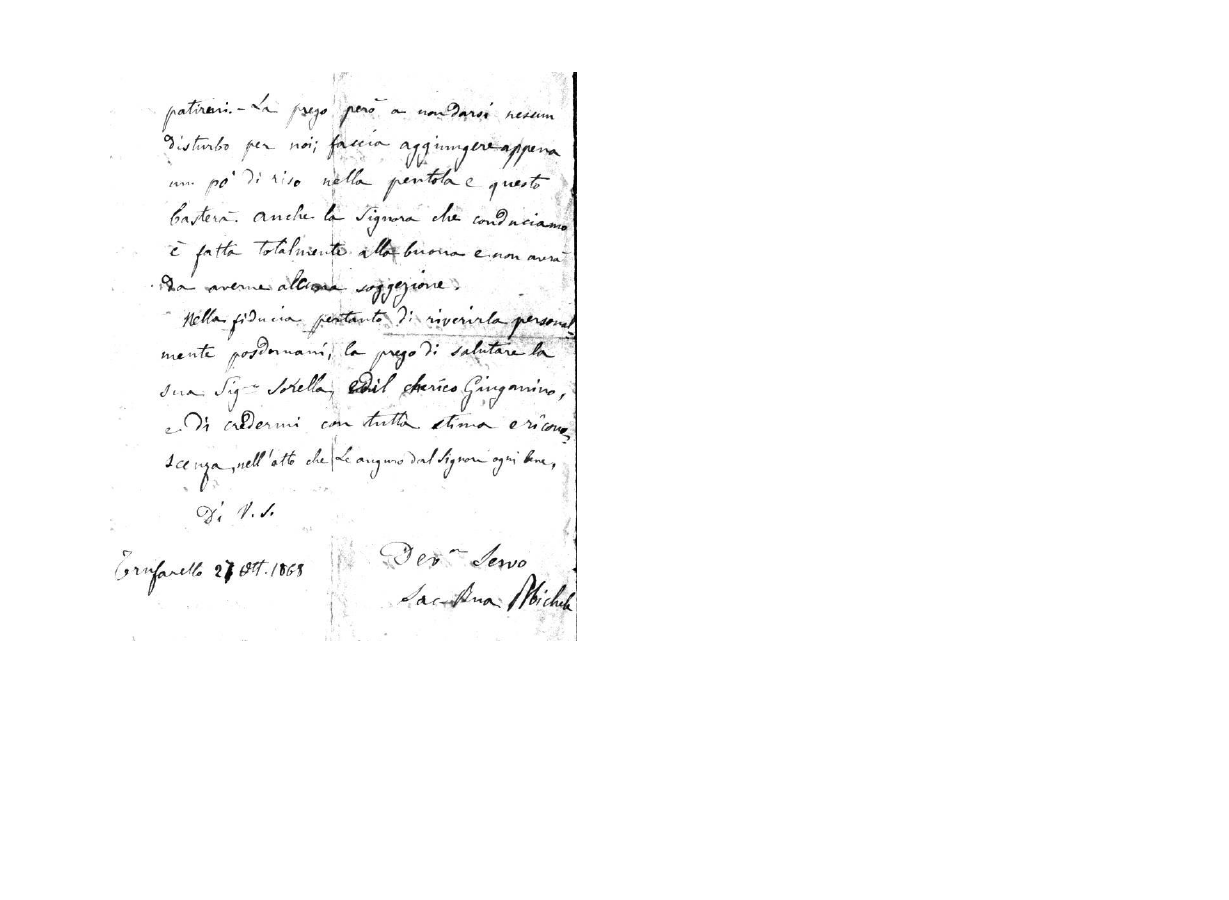 patirei.- La prego però a non darsi nessun
disturbo per noi; faccia aggiungere appena
un pò di riso nella pentola e questo
basterà. Anche la Signora che conduciamo
è fatta totalmente alla buona e non avrà
da averne alcuna soggezione.
Nella fiducia pertanto di riverirla personal-
mente posdomani, la prego di salutare la
sua Sig.ra Sorella, ed il cherico Ginganino,
e di credermi con tutta stima e ricono-
scenza, nell'atto che Le auguro dal Signore ogni bene,
Di V. S.
Trufarello 27 Ott. 1868
Dev.mo Servo
Sac. Rua Michele